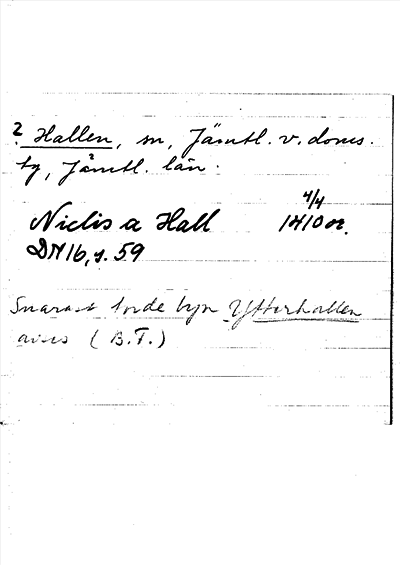 2. Hallen, sn, Jämtl. v. doms.
tg, Jämtl. län.
4/4
Niclis a Hall 1410 or.
DN 16, s. 59
Snarast torde byn Ytterhallen
avses (B.T.)